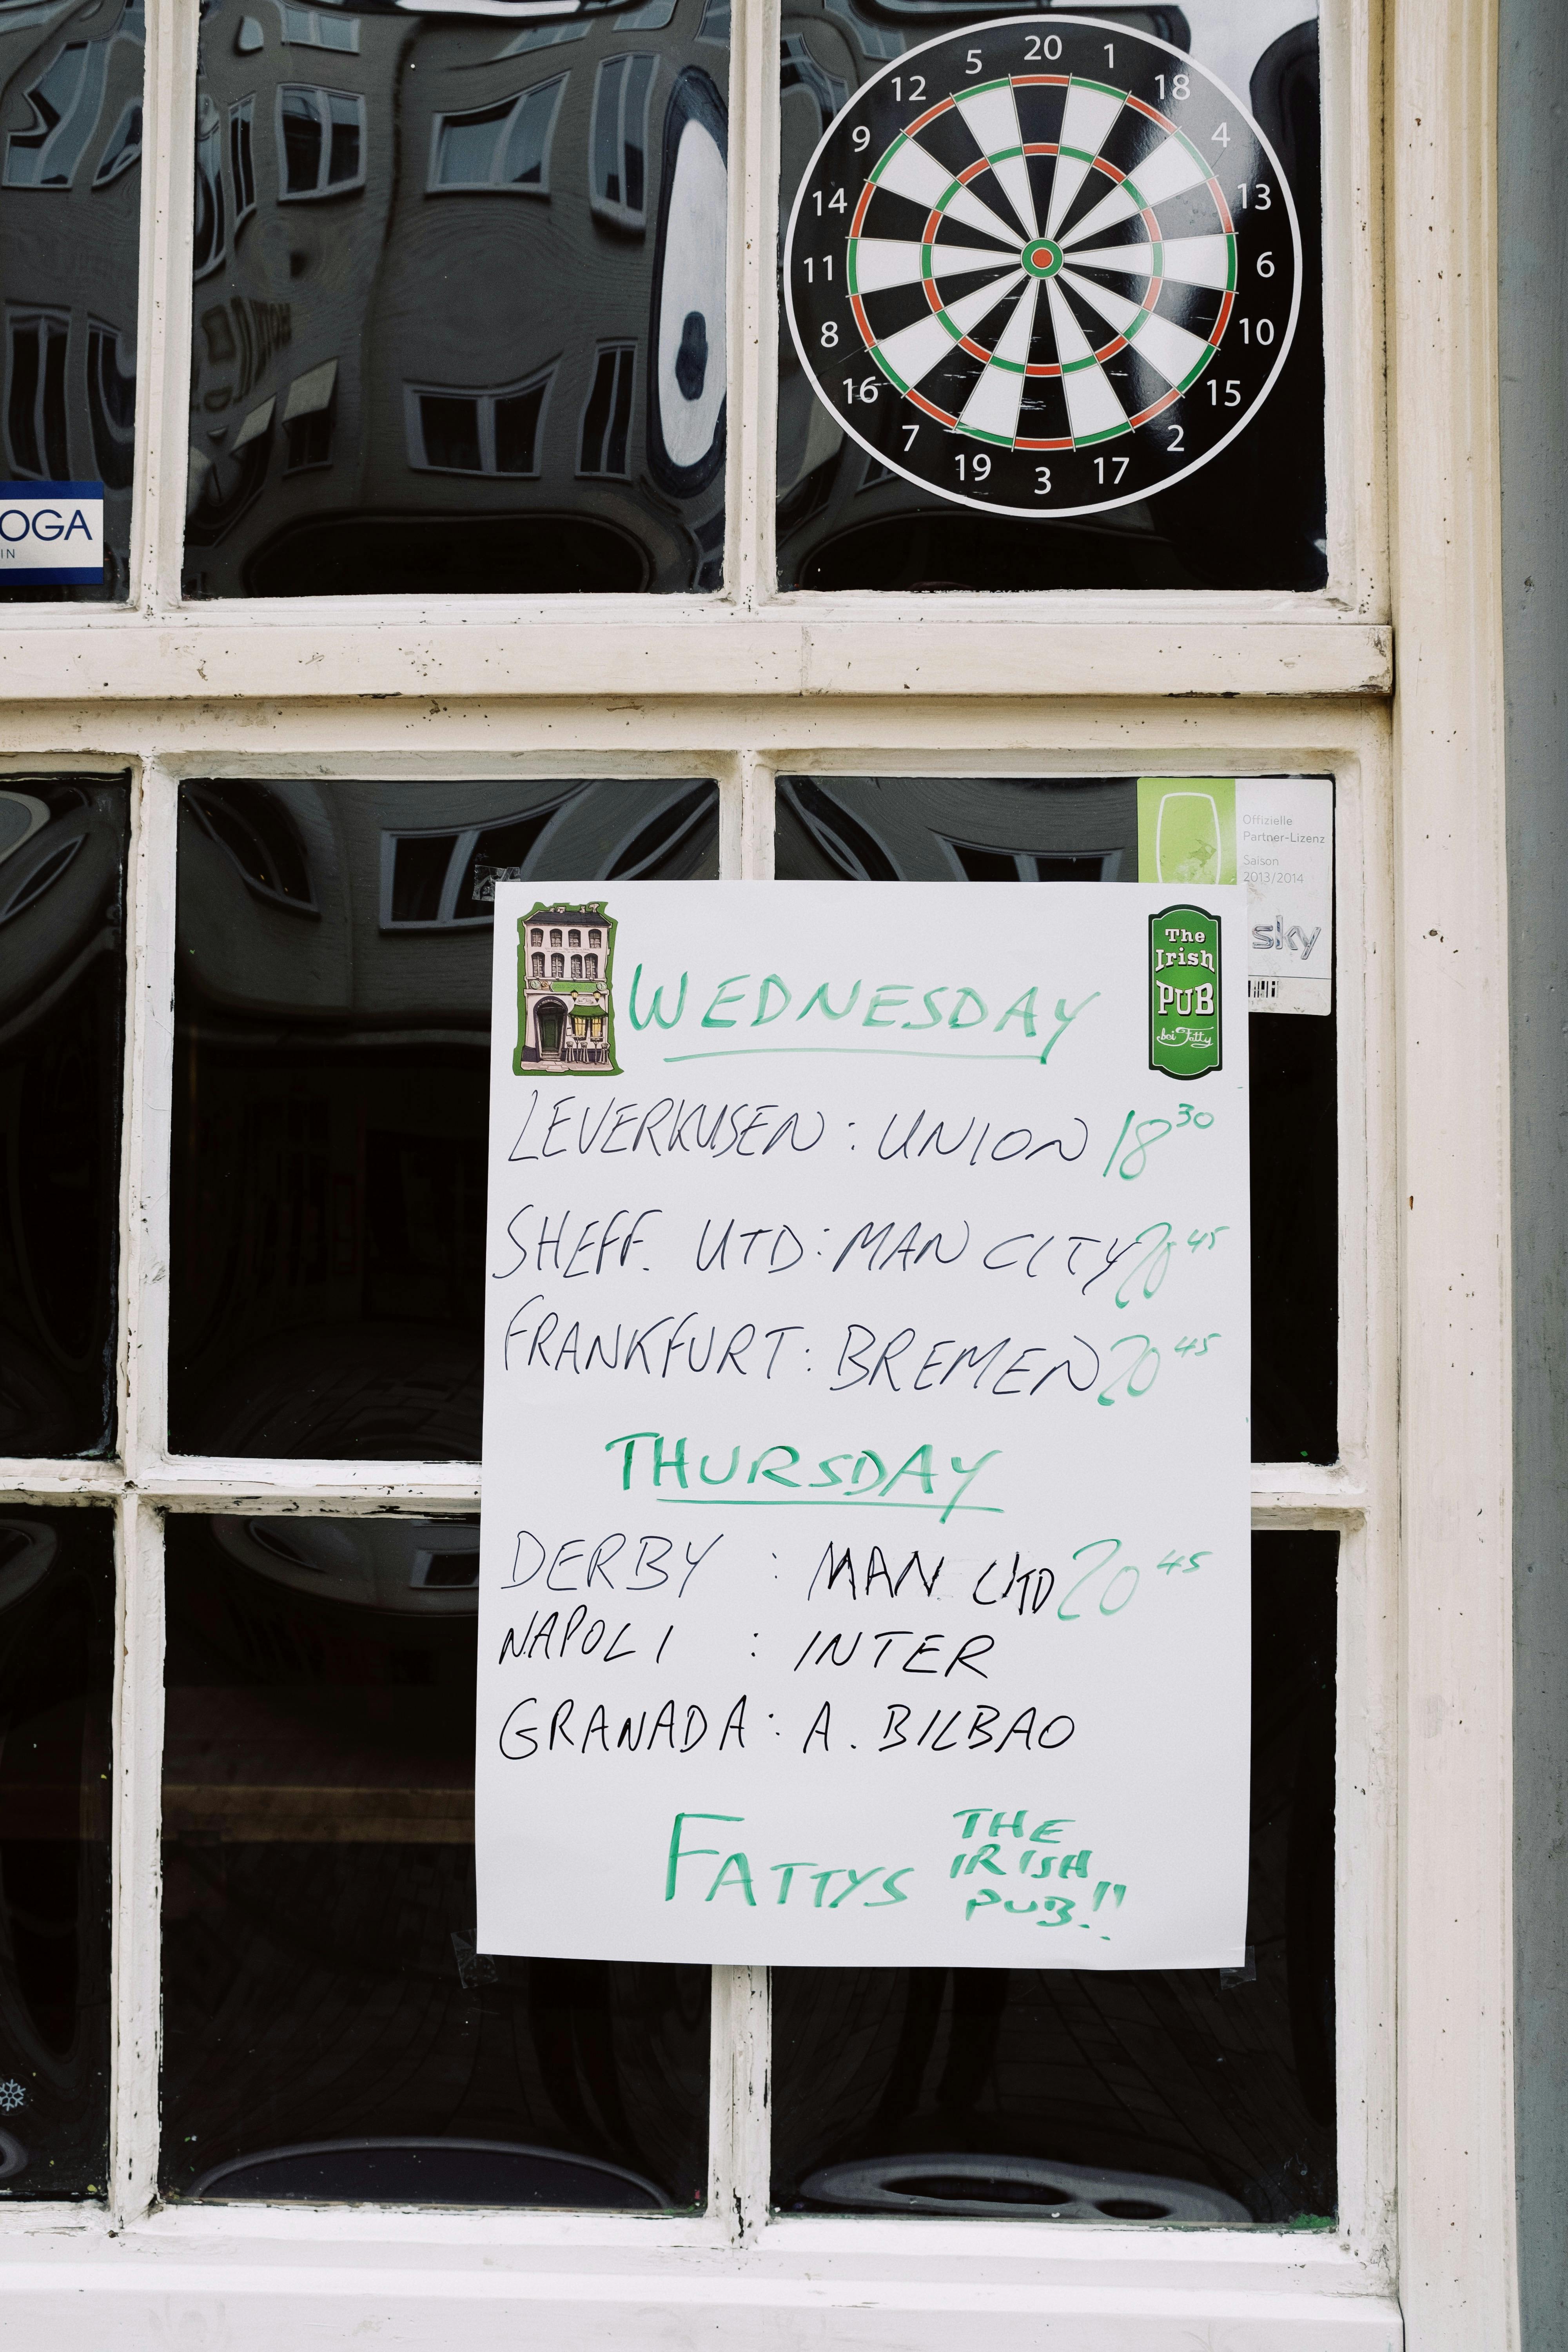 5 20 1
12 18
9 4
14 13
11 6
8 10
16 15
7 2
19 3 17
OGA
IN
Offizielle
Partner-Lizenz
Saison
2013/2014
sky
The
Irish
PUB
bei Fatty
WEDNESDAY
LEVERKUSEN : UNION 18 30
SHEFF. UTD : MAN CITY 20 45
FRANKFURT : BREMEN 20 45
THURSDAY
DERBY : MAN UTD 20 45
NAPOLI : INTER
GRANADA : A. BILBAO
FATTYS THE
IRISH
PUB!!